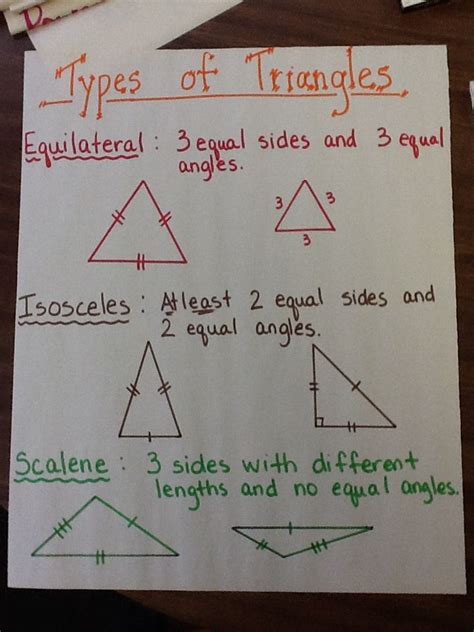 Types of Triangles
Equilateral : 3 equal sides and 3 equal
angles.
3 3
3
Isosceles : At least 2 equal sides and
2 equal angles.
Scalene : 3 sides with different
lengths and no equal angles.